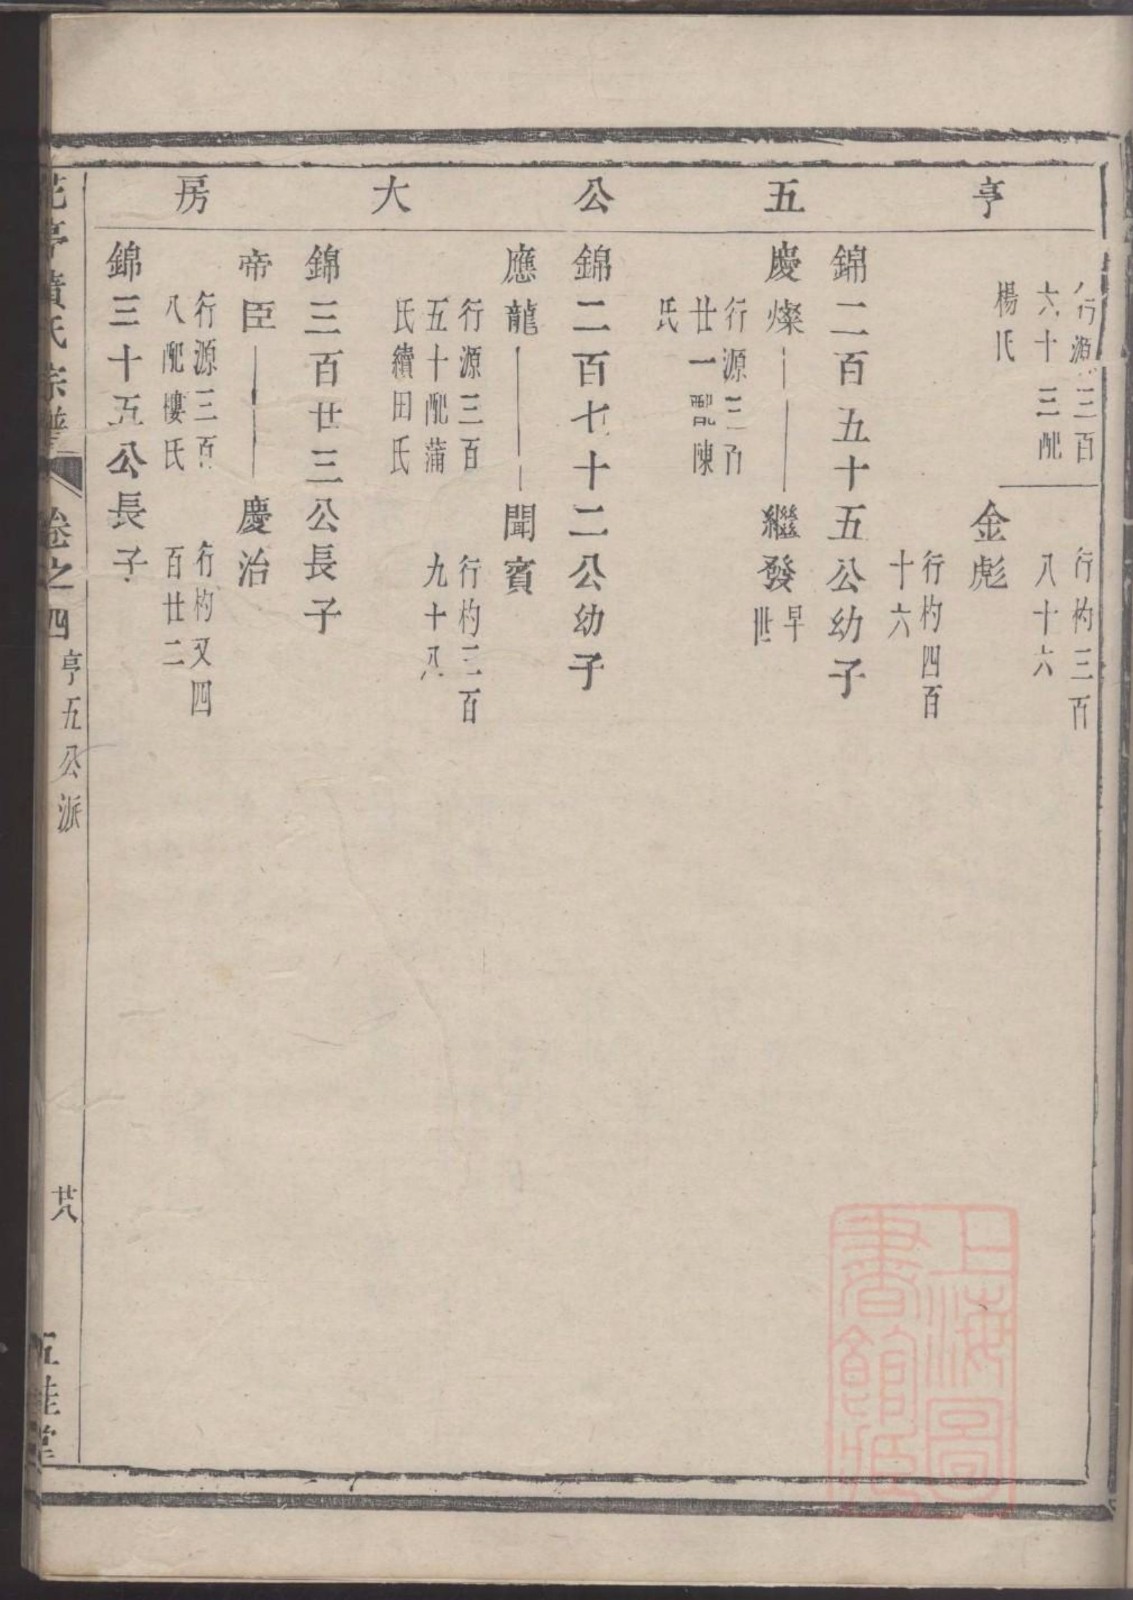 亨五公大房
行源三百
六十三配
楊氏
行杓三百
八十六
金彪
行杓四百
十六
錦二百五十五公幼子
慶燦 繼發 早世
行源三百
廿一配陳
氏
錦二百七十二公幼子
應龍 聞賓
行源三百
五十配蒲
氏續田氏
行杓三百
九十八
錦三百廿三公長子
帝臣 慶治
行源三百
八配樓氏
行杓又四
百廿二
錦三十五公長子
氏宗譜 卷之四 亨五公派 廿八 五桂堂
上海圖書館藏